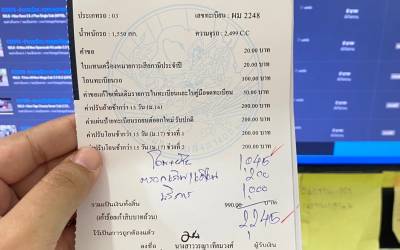 ประเภทรถ : 03 เลขทะเบียน : ผม 2248
น้ำหนักรถ : 1,550 กก. ความจุรถ : 2,499 C.C
ค่าขอ 20.00 บาท
ใบแทนเครื่องหมายการเสียภาษีประจำปี 20.00 บาท
โอนทะเบียนรถ 100.00 บาท
ค่าขอแก้ไขเพิ่มเติมรายการในทะเบียนและใบคู่มือจดทะเบียน 50.00 บาท
ค่าปรับย้ายช้ากว่า 15 วัน (ม.16) 200.00 บาท
ค่าแผ่นป้ายทะเบียนรถยนต์ออกใหม่ รับปกติ 200.00 บาท
ค่าปรับโอนช้ากว่า 15 วัน (ม.17) ช่วงที่ 1 200.00 บาท
ค่าปรับโอนช้ากว่า 15 วัน (ม.17) ช่วงที่ 2 200.00 บาท
1045
200
1000
รวมเป็นเงินทั้งสิ้น 990.00 บาท
2245
(เก้าร้อยเก้าสิบบาทถ้วน)
ไว้เป็นการถูกต้องแล้ว
ลงชื่อ ผู้รับเงิน